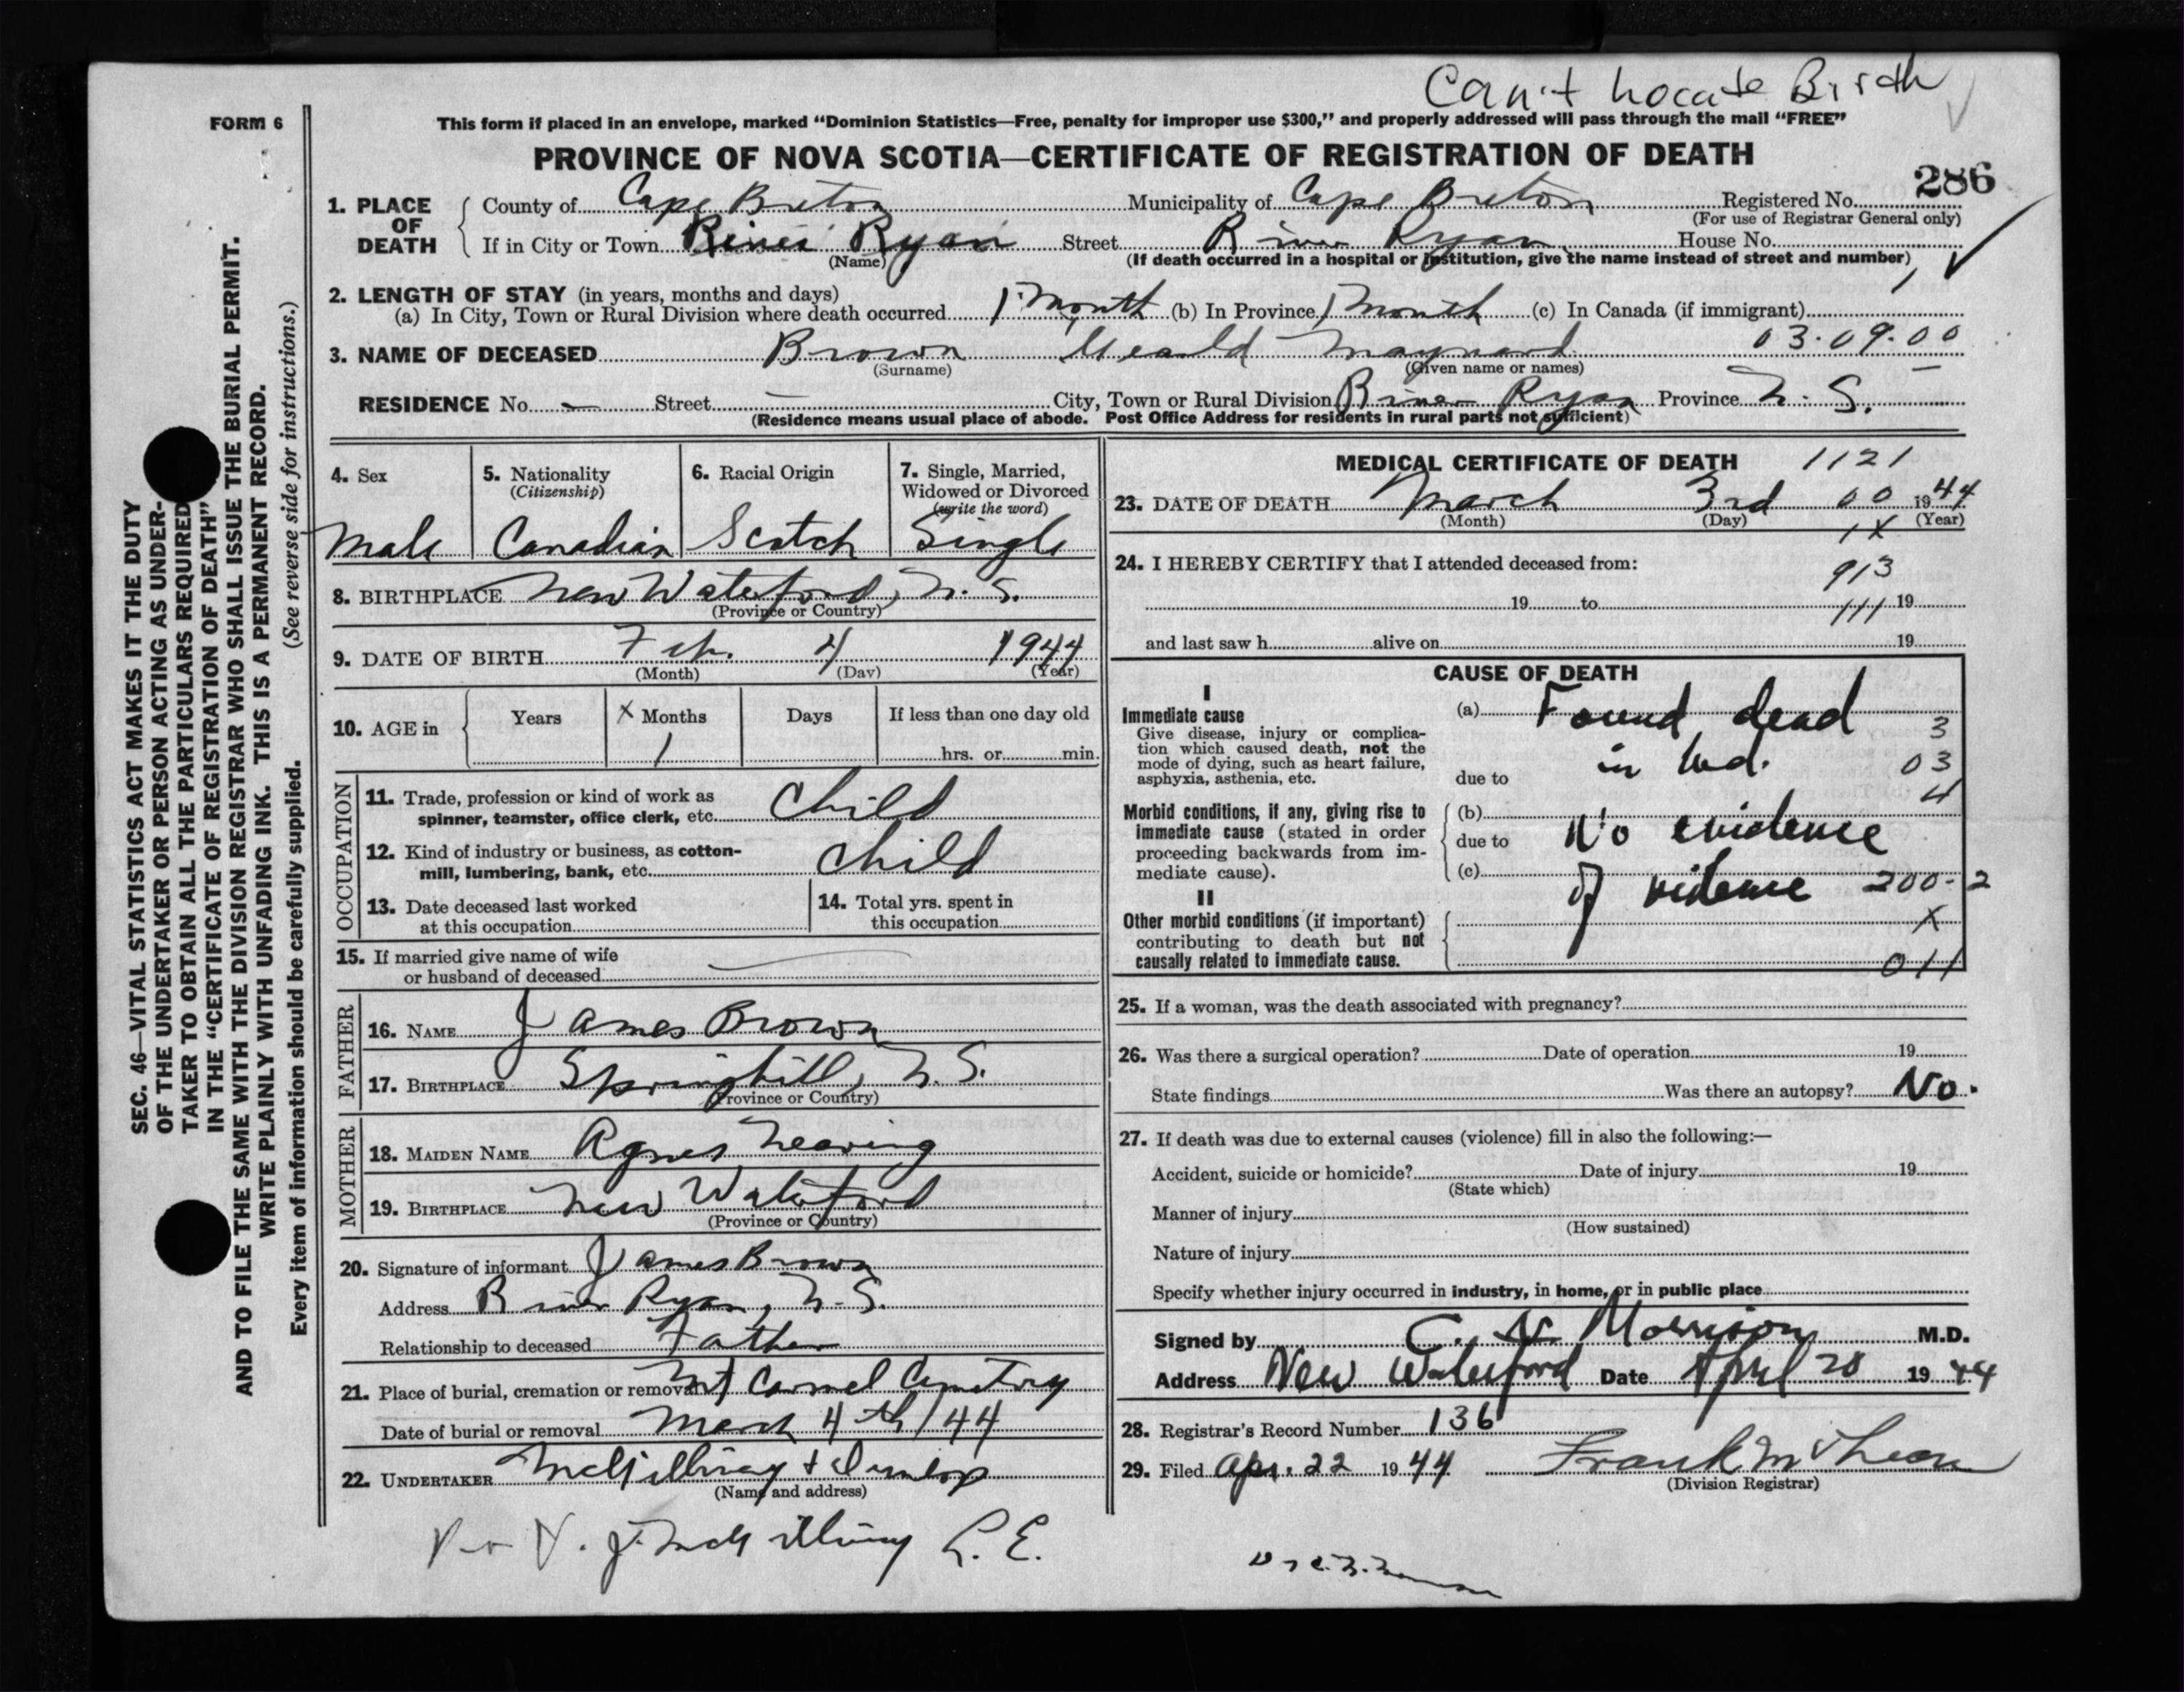 Can't Locate Birth
FORM 6
This form if placed in an envelope, marked “Dominion Statistics—Free, penalty for improper use $300,” and properly addressed will pass through the mail “FREE”
PROVINCE OF NOVA SCOTIA—CERTIFICATE OF REGISTRATION OF DEATH
286
1. PLACE OF DEATH { County of Cape Breton Municipality of Cape Breton Registered No.
(For use of Registrar General only)
If in City or Town River Ryan Street River Ryan House No.
(Name) (If death occurred in a hospital or institution, give the name instead of street and number)
2. LENGTH OF STAY (in years, months and days)
(a) In City, Town or Rural Division where death occurred 1 Month (b) In Province 1 Month (c) In Canada (if immigrant)
3. NAME OF DECEASED Brown Gerald Maynard 03.09.00
(Surname) (Given name or names)
RESIDENCE No. — Street — City, Town or Rural Division River Ryan Province N.S.
(Residence means usual place of abode. Post Office Address for residents in rural parts not sufficient)
4. Sex 5. Nationality 6. Racial Origin 7. Single, Married,
(Citizenship) Widowed or Divorced
(write the word)
Male Canadian Scotch Single
8. BIRTHPLACE New Waterford, N.S.
(Province or Country)
9. DATE OF BIRTH Feb. 4 1944
(Month) (Day) (Year)
10. AGE in { Years X Months Days If less than one day old
1 hrs. or min.
OCCUPATION
11. Trade, profession or kind of work as
spinner, teamster, office clerk, etc. Child
12. Kind of industry or business, as cotton-
mill, lumbering, bank, etc. Child
13. Date deceased last worked
at this occupation
14. Total yrs. spent in
this occupation
15. If married give name of wife
or husband of deceased
FATHER
16. NAME James Brown
17. BIRTHPLACE Springhill, N.S.
(Province or Country)
MOTHER
18. MAIDEN NAME Agnes
19. BIRTHPLACE New Waterford
(Province or Country)
20. Signature of informant James Brown
Address River Ryan, N.S.
Relationship to deceased Father
21. Place of burial, cremation or removal Mt Carmel Cemetry
Date of burial or removal March 4th/44
22. UNDERTAKER McGillivray & Dunlop
(Name and address)
MEDICAL CERTIFICATE OF DEATH 1121
23. DATE OF DEATH March 3rd 00 1944
(Month) (Day) (Year)
1X
24. I HEREBY CERTIFY that I attended deceased from:
913
19 to 111 19
and last saw h alive on 19
CAUSE OF DEATH
I
Immediate cause
Give disease, injury or complica-
tion which caused death, not the
mode of dying, such as heart failure,
asphyxia, asthenia, etc.
(a) Found dead 3
due to in bed. 03
4
Morbid conditions, if any, giving rise to
immediate cause (stated in order
proceeding backwards from im-
mediate cause).
(b)
due to No evidence
(c) of violence 200-2
II
Other morbid conditions (if important) X
contributing to death but not
causally related to immediate cause. 011
25. If a woman, was the death associated with pregnancy?
26. Was there a surgical operation? Date of operation 19
State findings Was there an autopsy? No.
27. If death was due to external causes (violence) fill in also the following:—
Accident, suicide or homicide? Date of injury 19
(State which)
Manner of injury
(How sustained)
Nature of injury
Specify whether injury occurred in industry, in home, or in public place
Signed by C. N. Morrison M.D.
Address New Waterford Date April 20 1944
28. Registrar's Record Number 136
29. Filed Apr. 22 1944
(Division Registrar)
SEC. 46—VITAL STATISTICS ACT MAKES IT THE DUTY
OF THE UNDERTAKER OR PERSON ACTING AS UNDER-
TAKER TO OBTAIN ALL THE PARTICULARS REQUIRED
IN THE “CERTIFICATE OF REGISTRATION OF DEATH”
AND TO FILE THE SAME WITH THE DIVISION REGISTRAR WHO SHALL ISSUE THE BURIAL PERMIT.
WRITE PLAINLY WITH UNFADING INK. THIS IS A PERMANENT RECORD.
(See reverse side for instructions.)
Every item of information should be carefully supplied.